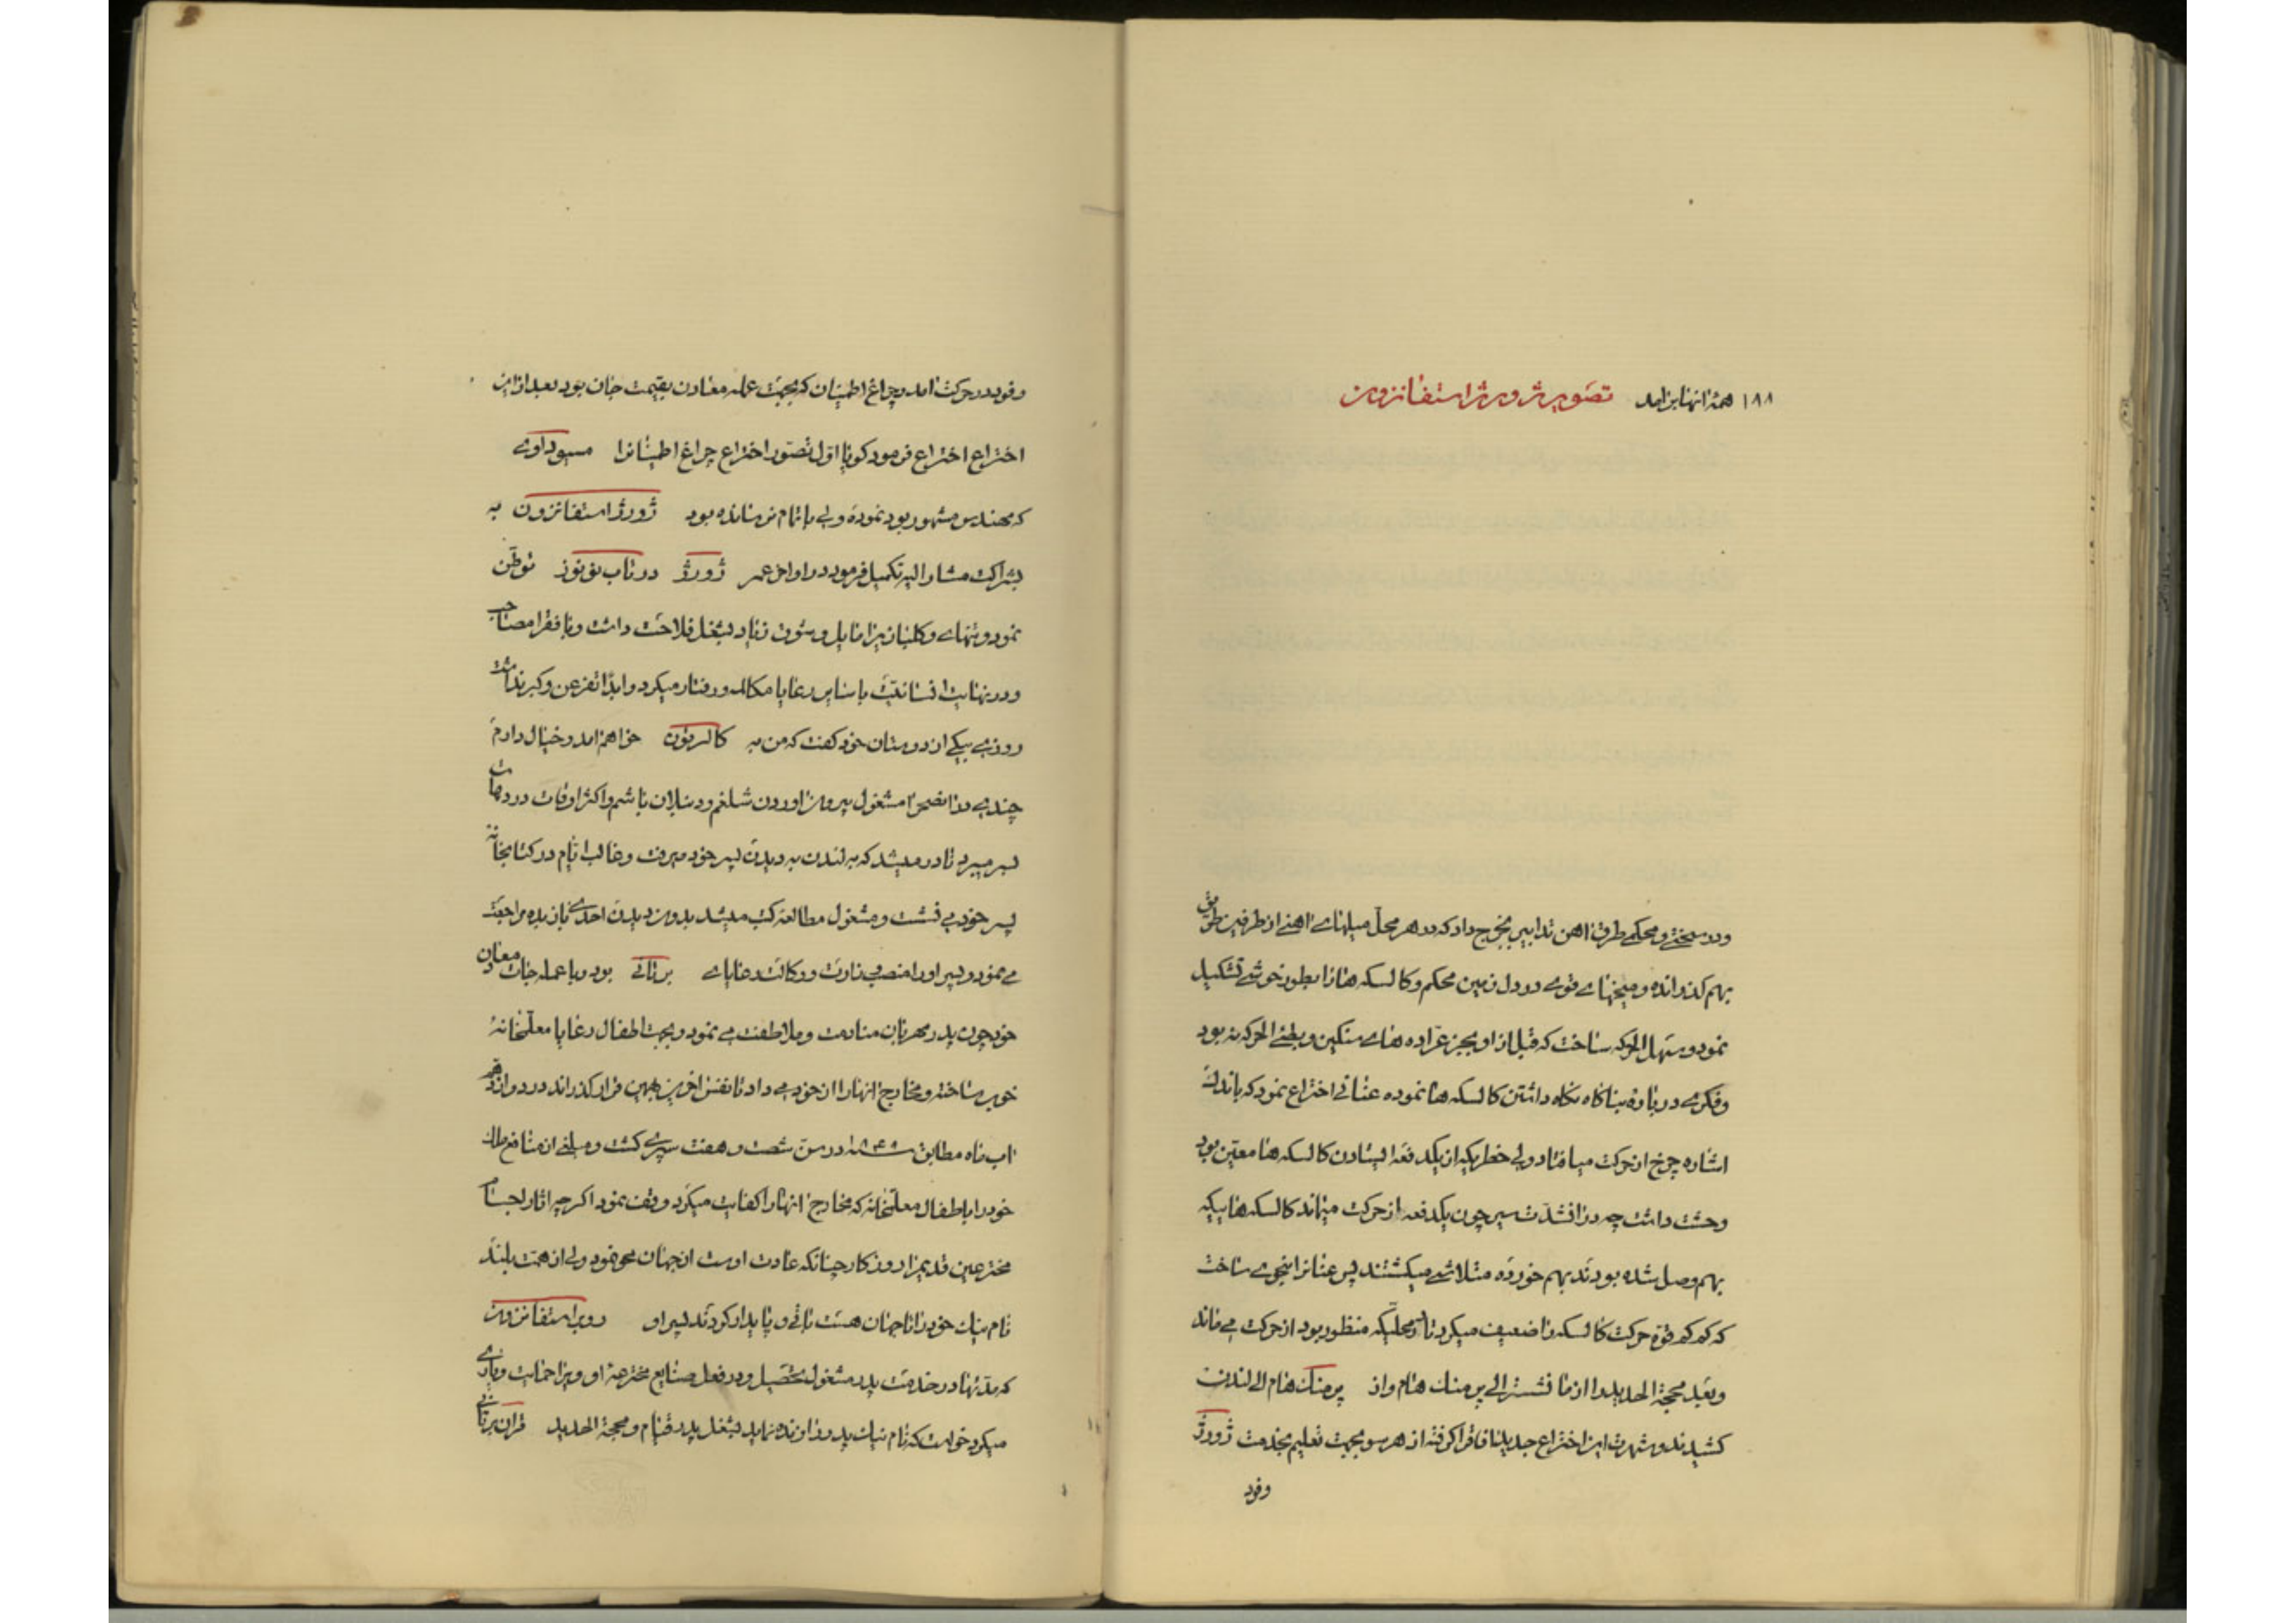 ۱۸۸ همهٔ انها بر امد تصویر ژورژ استفانزون
ودر سختی و محکمی طرق اهن تدابیر بخرج داد که در هر محل میلهای اهنی از طرفین طرق
بهم کذرانده و میخهای قوی در دل زمین محکم و کالسکه ها را بطور خوشی تشکیل
نمود و سهل الحرکه ساخت که قبل از او بجز عراده های سنکین و بطئ الحرکه نبود
و فکری در باره بناکاه نکاه داشتن کالسکه ها نموده عنانی اختراع نمود که باندک
اشاره چرخ از حرکت میافتاد ولی خطریکه از یکدفعه ایستادن کالسکه ها معین بود
وحشت داشت چه در ان شدت سیر چون یکدفعه از حرکت میماند کالسکه هائیکه
بهم وصل شده بودند بهم خورده متلاشی میکشتند پس عنانرا بنحوی ساخت
که کم کم قوة حرکت کالسکه را ضعیف میکرد تا در محلیکه منظور بود از حرکت می ماند
و بعد محجة الحدید را از مانشستر الی برمنک هام و از برمنک هام الی لندن
کشیدند و شهرت این اختراع جدید افاق را کرفته از هر سو بجهت تعلیم بخدمت ژورژ
وفود
وفود در حرکت امد و چراغ اطمینان که بجهت عمله معادن بقیمت جان بود بعد از این
اختراع اختراع فرمود کویا اول تصور اختراع چراغ اطمینانرا مسیو داوی
که مهندس مشهور بود نموده ولی باتمام نرسانده بود ژورژ استفانزون به
بشراکت مشار الیه تکمیل فرمود در اواخر عمر ژورژ در تاب تون هوز توطن
نمود و تنهای و کلبانرا مایل و شوق زیاد بشغل فلاحت داشت و با فقرا مصاحب
ودر نهایت انسانیت با سایر رعایا مکالمه و رفتار میکرد و ابدا تفرعن و کبر نداشت
روزی بیکی از دوستان خود کفت که من به کالرتون خواهم امد و خیال دارم
چندی در انصحرا مشغول بیرون اوردن شلغم ودر یلان باشم و اکثر اوقات در دهات
بسر میبرد نادر میشد که به لندن به دیدن پسر خود میرفت و غالب ایام در کتابخانه
پسر خود می نشست و مشغول مطالعه کتب میشد بدون دیدن احدی باز بده مراجعت
می نمود و پسر او را منصب وزارت و وکالت رعایای برتانی بود و با عمله جات معادن
خود چون پدر مهربان منادمت و ملاطفت می نمود و بجهت اطفال رعایا معلمخانهٔ
خوب ساخته و مخارج انها را از خود می داد تا نفس اخرین بهمین قرار کذراند در دوازدهم
اب ماه مطابق سنه ۱۸۴۸ در سن شصت و هفت سپری کشت و مبلغی از منافع ملک
خود را باطفال معلمخانه که مخارج انها را کفایت میکرد وقف نمود اکرچه اثار اجسام
مخترعین قدیمرا روزکار چنانکه عادت اوست از جهان محو نمود ولی از همت بلند
نام نیک خود را تا جهان هست باقی و پایدار کردند پسر او روبر استفانزون
که مدتها در خدمت پدر مشغول تحصیل و در فعل صنایع مخترعهٔ او و یرا حمایت و یاری
میکرد خواست که نام نیک پدر را زنده نماید بشغل پدر قیام و محجة الحدید قران برتانی